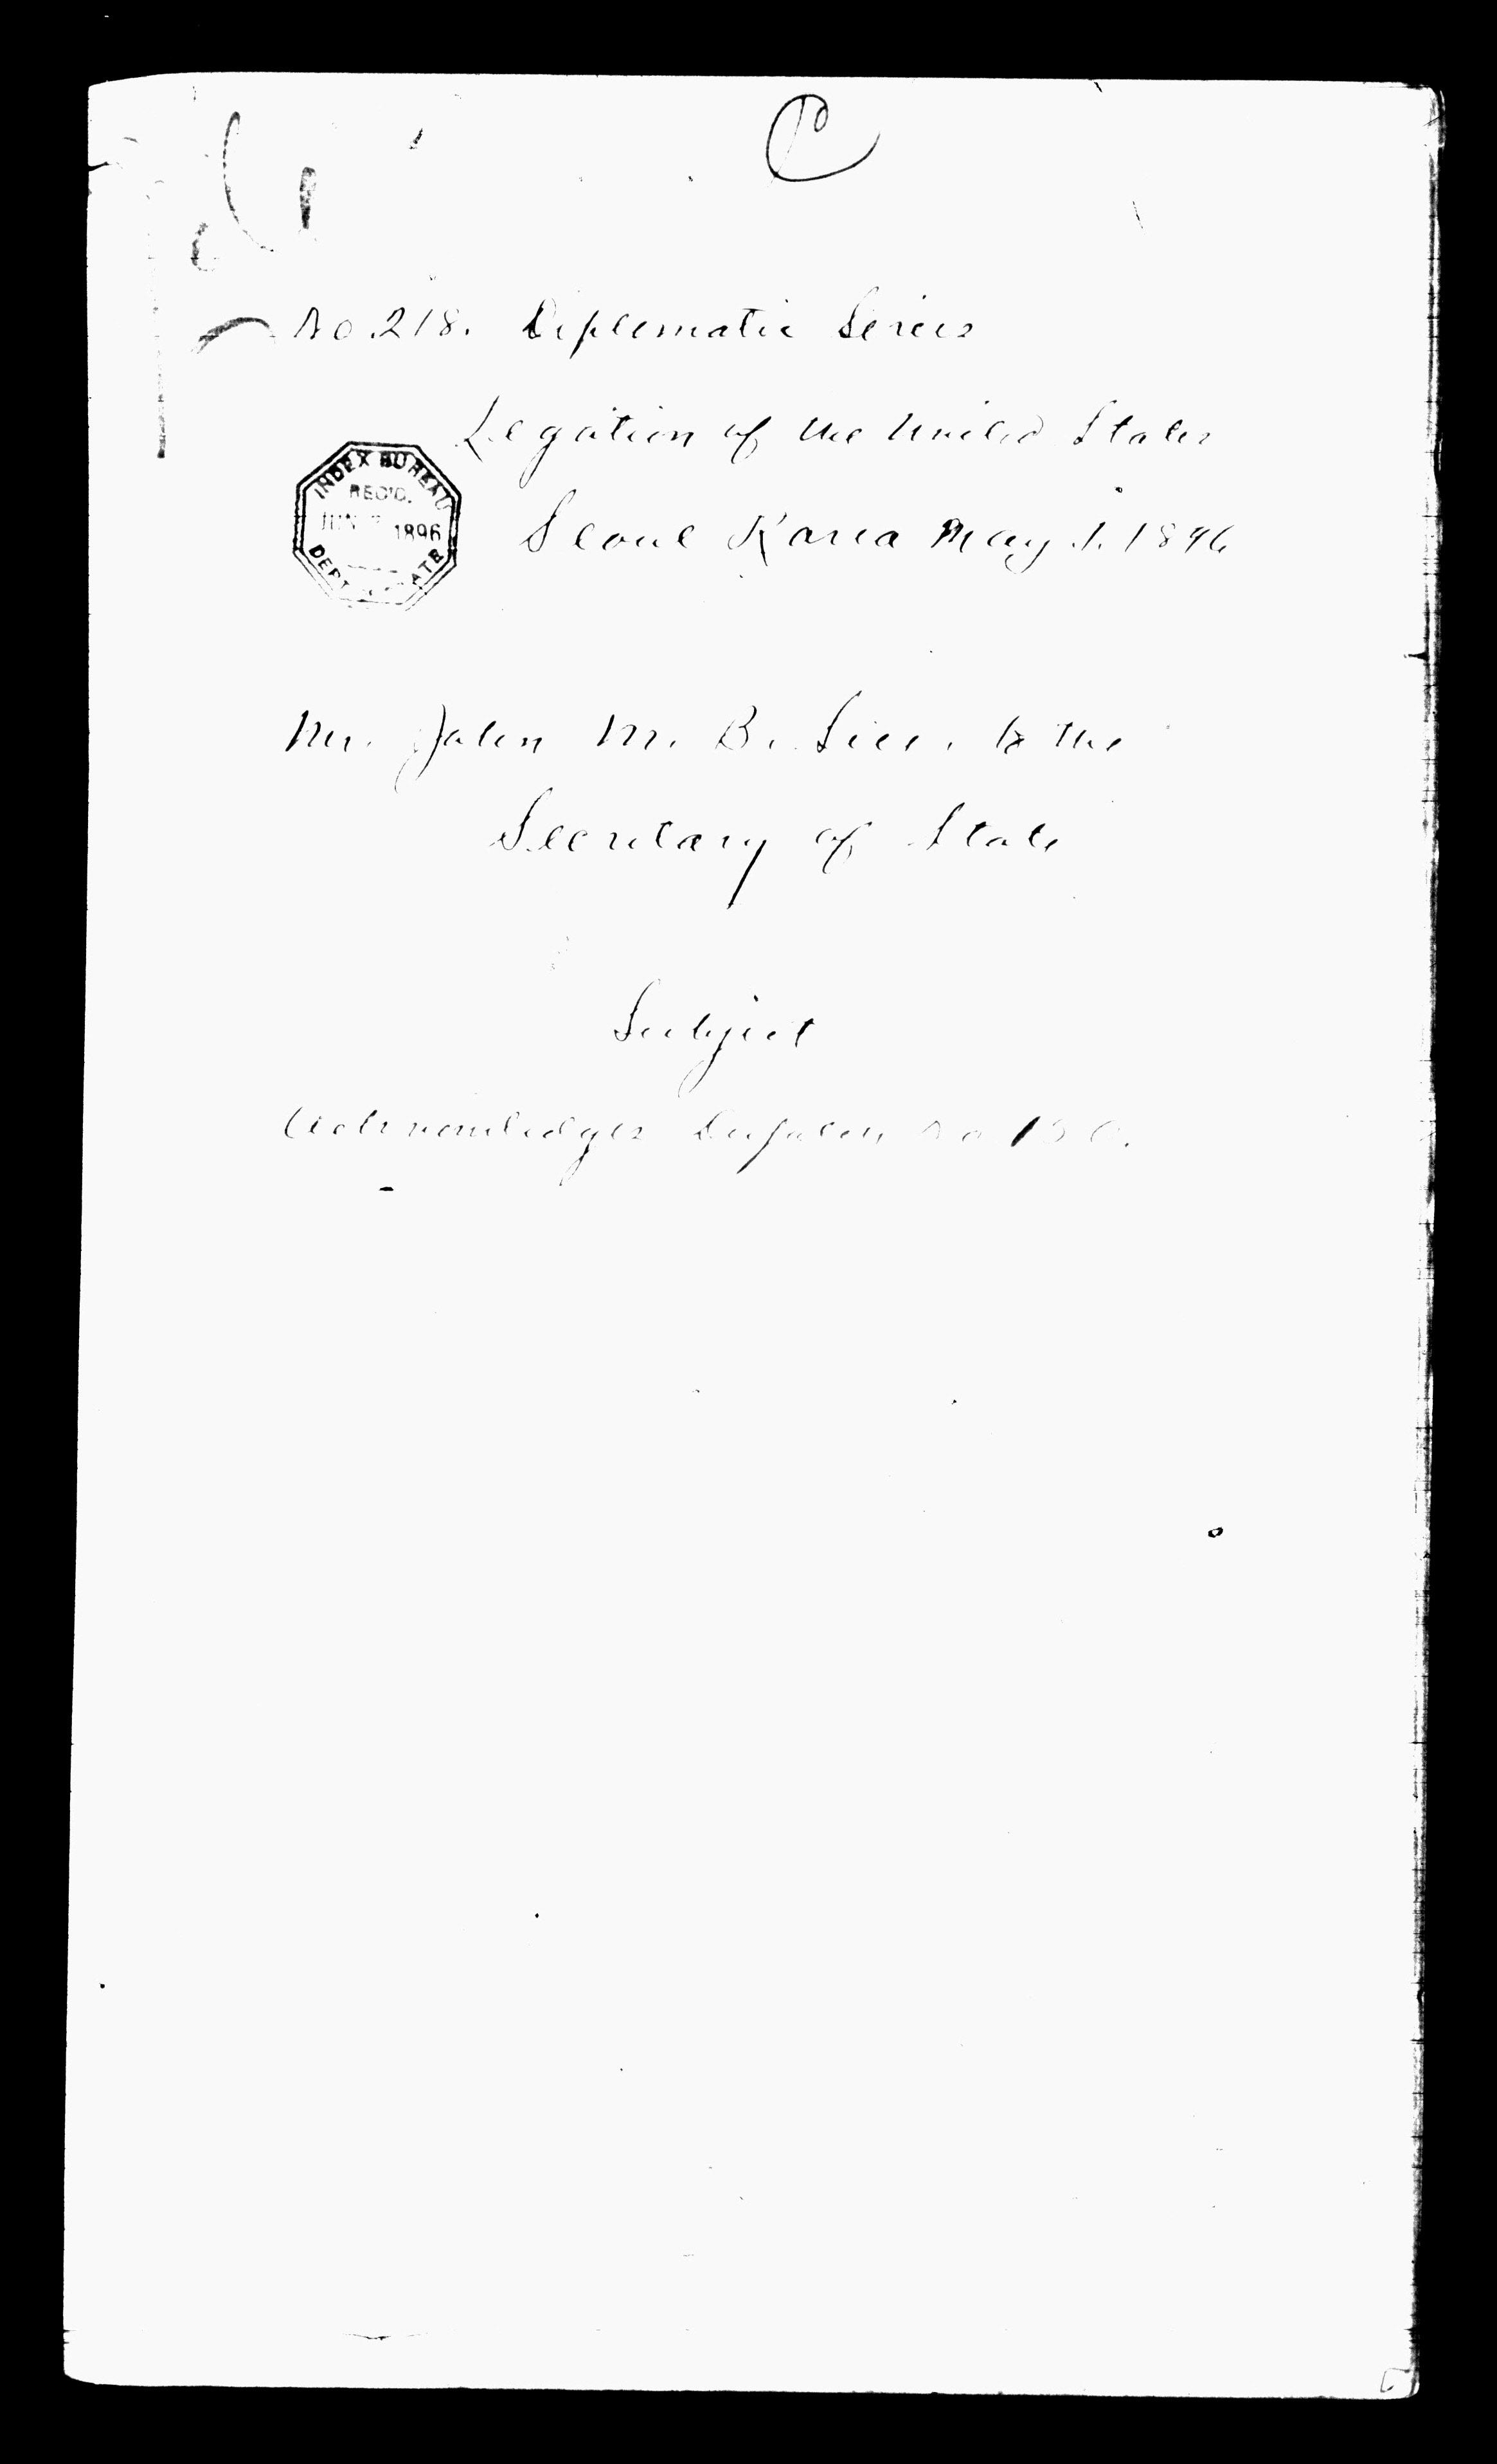 No. 218. Diplomatic Series
Legation of the United States
INDEX BUREAU
REC'D.
JUN 1896
DEPT. OF STATE
Seoul Korea May 1. 1896
Mr. John M. B. Sill, to the
Secretary of State
Subject
Acknowledges Despatch No